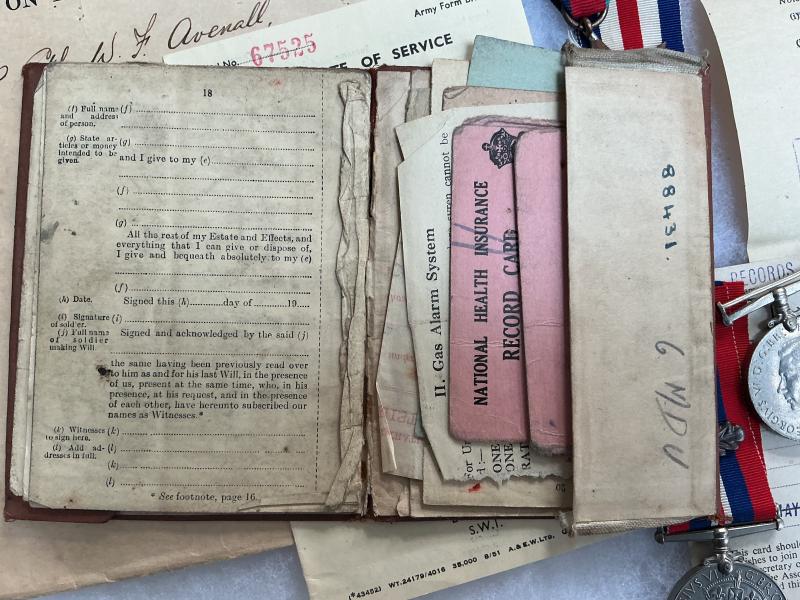 Cpl. W. F Avenall,
Army Form B
No. 67525
E OF SERVICE
18
(f) Full name and address of person.
(f)
(g) State articles or money intended to be given.
(g)
and I give to my (e)
(f)
(g)
All the rest of my Estate and Effects, and
everything that I can give or dispose of,
I give and bequeath absolutely to my (e)
(f)
(h) Date.
Signed this (h) day of 19
(i) Signature of soldier.
(i)
(j) Full name of soldier making Will.
Signed and acknowledged by the said (j)
the same having been previously read over
to him as and for his last Will, in the presence
of us, present at the same time, who, in his
presence, at his request, and in the presence
of each other, have hereunto subscribed our
names as Witnesses.*
(k) Witnesses to sign here.
(k)
(l) Add addresses in full.
(l)
(k)
(l)
* See footnote, page 16.
II. Gas Alarm System
cannot be
NATIONAL HEALTH INSURANCE
RECORD CARD
For Un
ONE
ONE
RAT
88431.
6 MRU
RECORDS
S.W.1.
(*43452) WT.24179/4016 35,000 8/51 A.& E.W.LTD.
This card shou
wishes to join